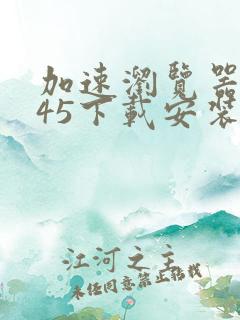 加速瀏覽器
45下載安裝
江河之主
未经同意禁止转载